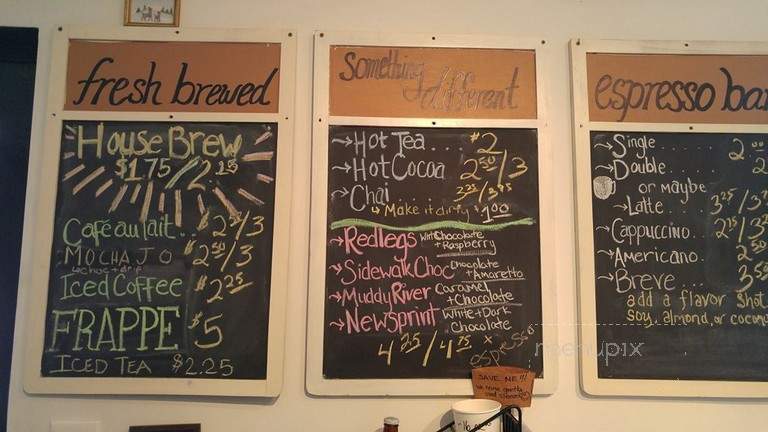 fresh brewed
House Brew
$1.75/2.25
Café au lait.. $2 50/3
MOCHA JO $2 50/3
w choc + drip
Iced Coffee $2 25
FRAPPE $5
ICED TEA $2.25
Something different
→Hot Tea.... $2
→Hot Cocoa 2 50/3
→Chai 3 25/3 75
↳ Make it dirty + $1.00
→Redlegs White Chocolate + Raspberry
→Sidewalk Choc Chocolate + Amaretto
→Muddy River Caramel + Chocolate
→Newsprint White + Dark Chocolate
4 25/4 75 x
espresso
SAVE ME!!!
espresso bar
→Single..... 2 00
→Double.. 2
or maybe
→Latte.. 3 25/3 7
→Cappuccino.. 2 75/3 2
→Americano.. 2 50
→Breve... 3 50
add a flavor shot
soy, almond, or coconu
menupix
16